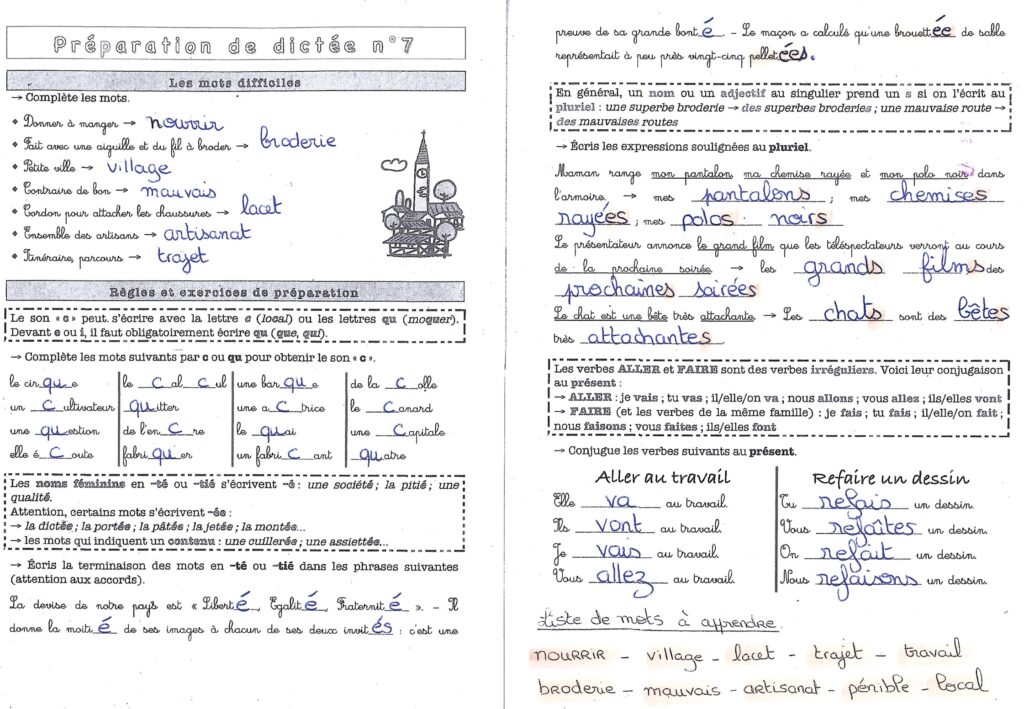 Préparation de dictée n°7
Les mots difficiles
→ Complète les mots.
◆ Donner à manger → nourrir
◆ Fait avec une aiguille et du fil à broder → broderie
◆ Petite ville → village
◆ Contraire de bon → mauvais
◆ Cordon pour attacher les chaussures → lacet
◆ Ensemble des artisans → artisanat
◆ Itinéraire, parcours → trajet
Règles et exercices de préparation
Le son « c » peut s'écrire avec la lettre c (local) ou les lettres qu (moquer).
Devant e ou i, il faut obligatoirement écrire qu (que, qui).
→ Complète les mots suivants par c ou qu pour obtenir le son « c ».
le cirque le calcul une barque de la colle
un cultivateur quitter une actrice le canard
une question de l'encre le quai une capitale
elle écoute fabriquer un fabricant quatre
Les noms féminins en -té ou -tié s'écrivent -é : une société ; la pitié ; une
qualité.
Attention, certains mots s'écrivent -ée :
→ la dictée ; la portée ; la pâtée ; la jetée ; la montée...
→ les mots qui indiquent un contenu : une cuillerée ; une assiettée...
→ Écris la terminaison des mots en -té ou -tié dans les phrases suivantes
(attention aux accords).
La devise de notre pays est « Liberté, Egalité, Fraternité ». – Il
donne la moitié de ses images à chacun de ses deux invités : c'est une
preuve de sa grande bonté. – Le maçon a calculé qu'une brouettée de sable
représentait à peu près vingt-cinq pelletées.
En général, un nom ou un adjectif au singulier prend un s si on l'écrit au
pluriel : une superbe broderie → des superbes broderies ; une mauvaise route →
des mauvaises routes
→ Écris les expressions soulignées au pluriel.
Maman range mon pantalon, ma chemise rayée et mon polo noir dans
l'armoire. → mes pantalons ; mes chemises
rayées ; mes polos noirs
Le présentateur annonce le grand film que les téléspectateurs verront au cours
de la prochaine soirée → les grands films des
prochaines soirées
Le chat est une bête très attachante → Les chats sont des bêtes
très attachantes
Les verbes ALLER et FAIRE sont des verbes irréguliers. Voici leur conjugaison
au présent :
→ ALLER : je vais ; tu vas ; il/elle/on va ; nous allons ; vous allez ; ils/elles vont
→ FAIRE (et les verbes de la même famille) : je fais ; tu fais ; il/elle/on fait ;
nous faisons ; vous faites ; ils/elles font
→ Conjugue les verbes suivants au présent.
Aller au travail Refaire un dessin
Elle va au travail. Tu refais un dessin.
Ils vont au travail. Vous refaîtes un dessin.
Je vais au travail. On refait un dessin.
Vous allez au travail. Nous refaisons un dessin.
Liste de mots à apprendre.
NOURRIR – village – lacet – trajet – travail
broderie – mauvais – artisanat – pénible – local